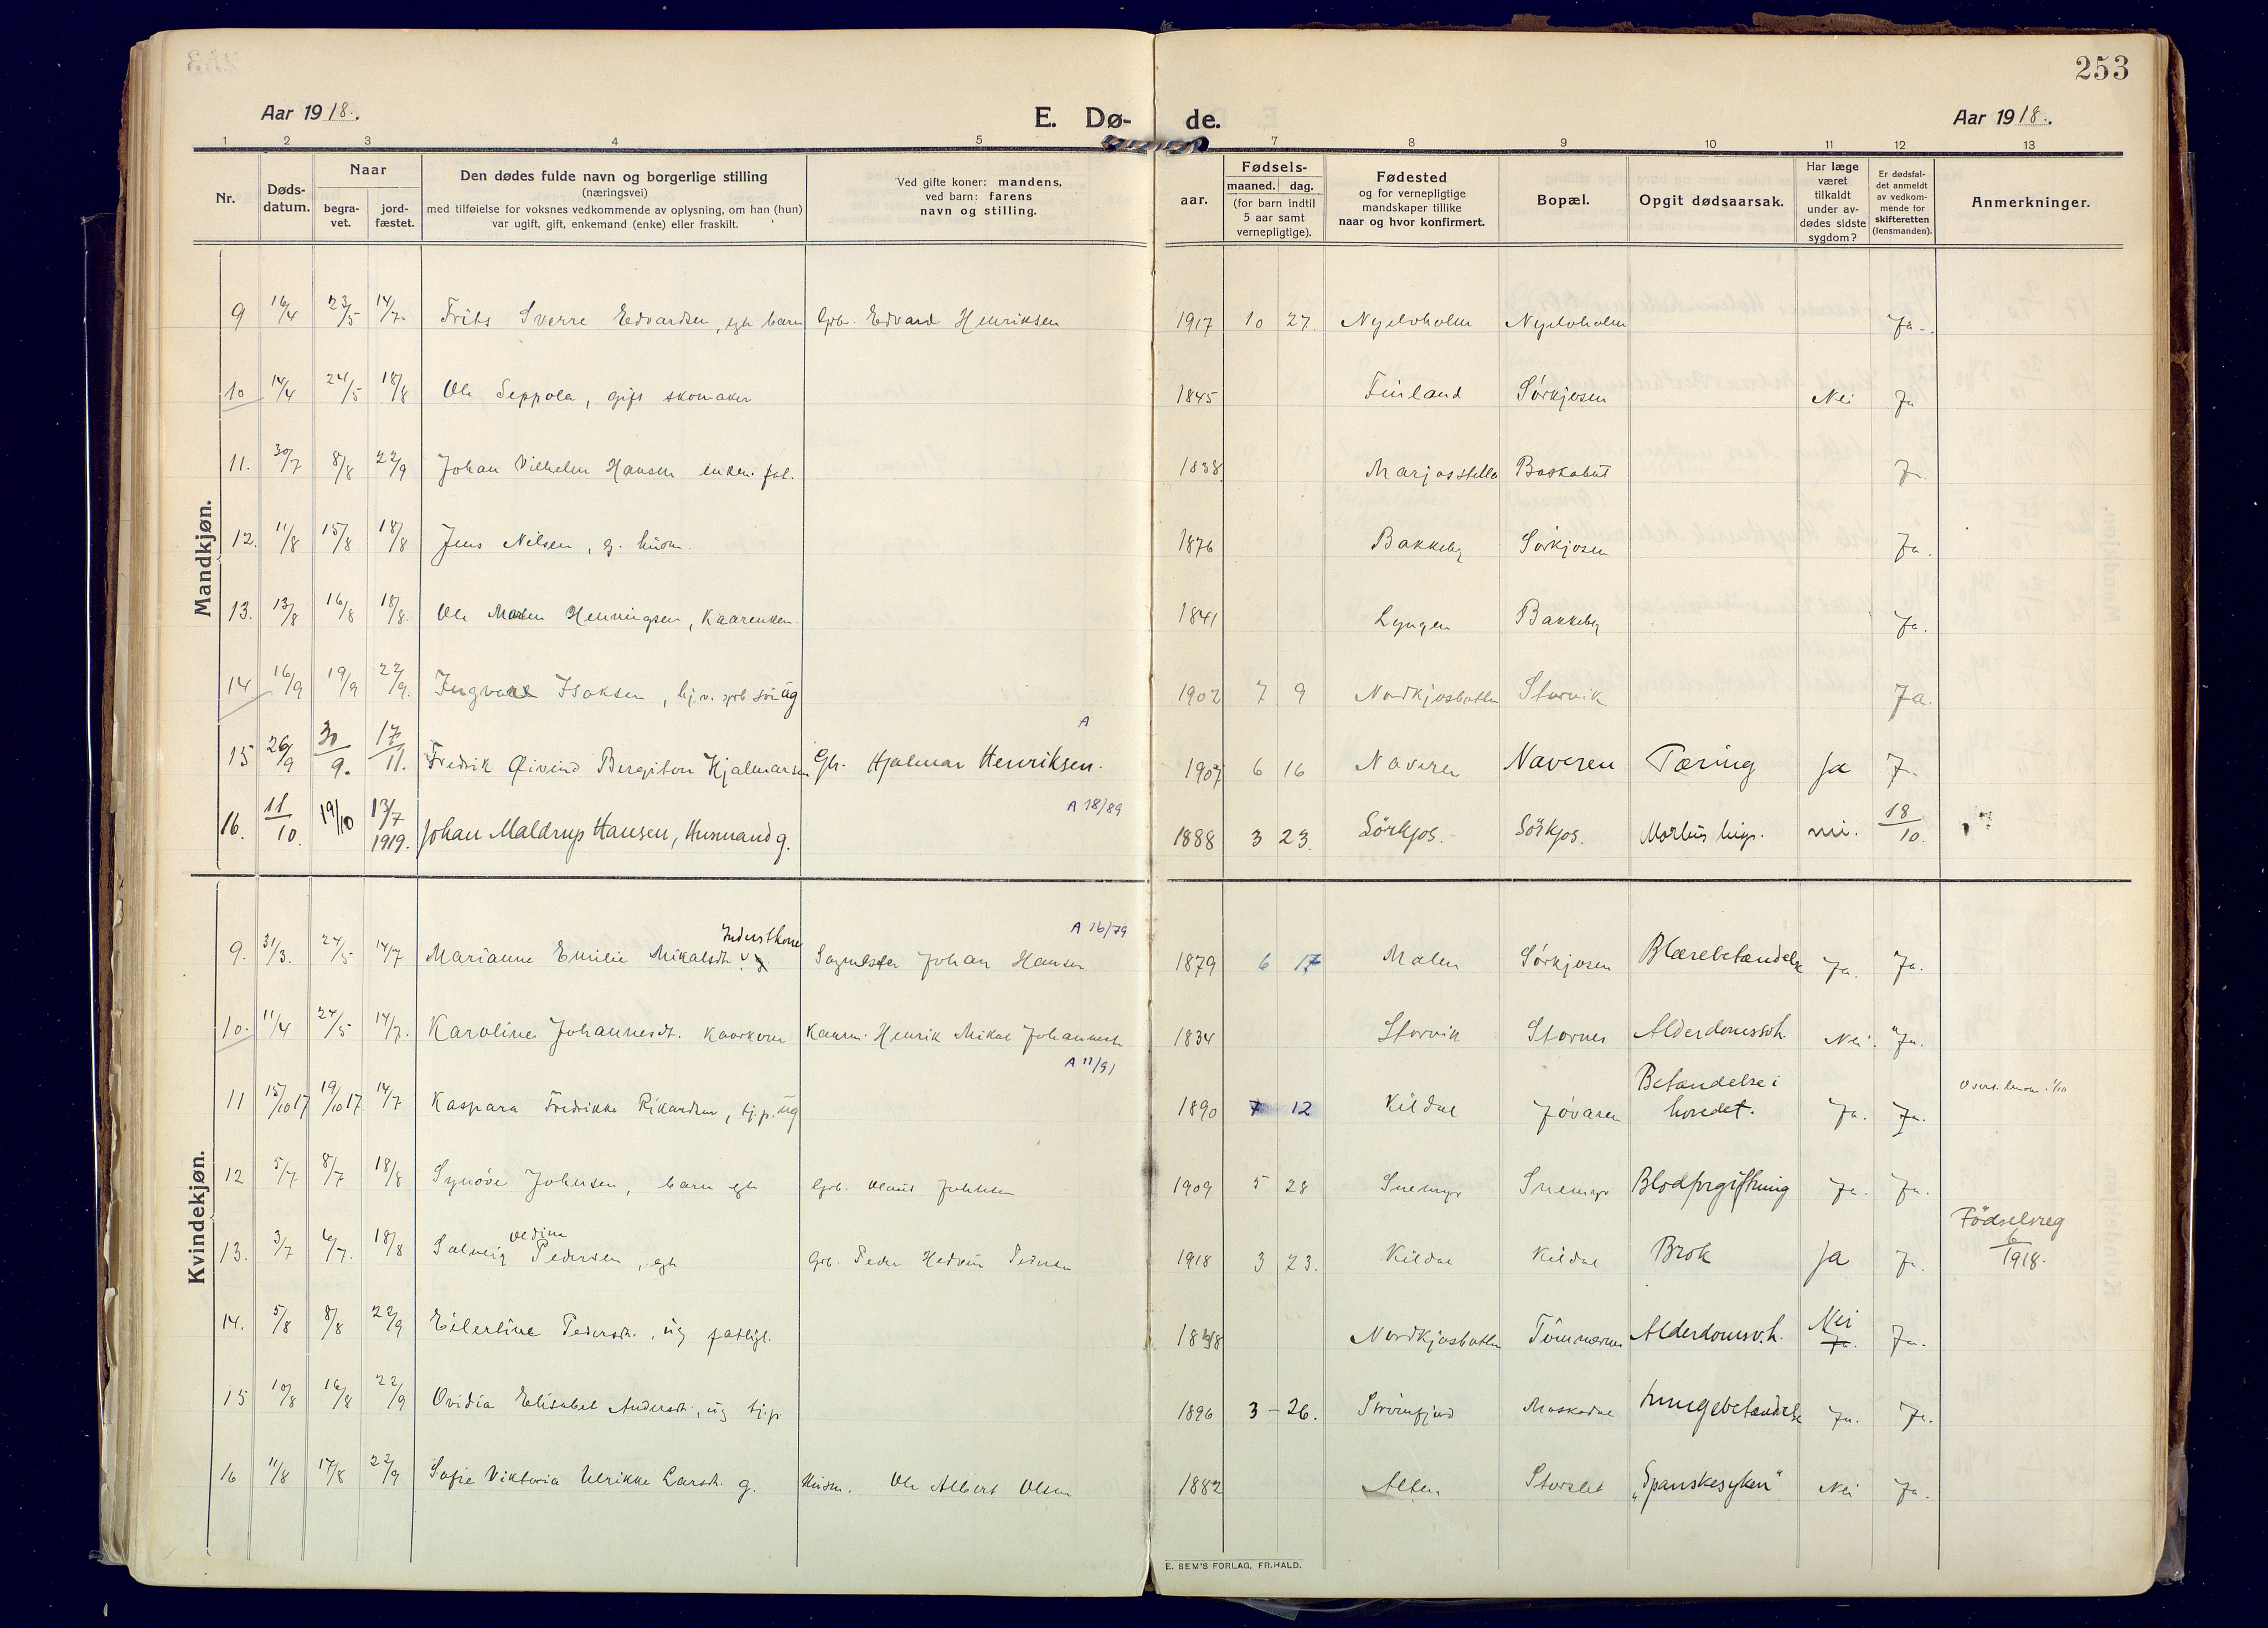 253
Aar 1918. E. Dø- de. Aar 1918.
1 2 3 4 5 7 8 9 10 11 12 13
Nr.
Døds-
datum.
Naar
begra-
vet.
jord-
fæstet.
Den dødes fulde navn og borgerlige stilling
(næringsvei)
med tilføielse for voksnes vedkommende av oplysning, om han (hun)
var ugift, gift, enkemand (enke) eller fraskilt.
Ved gifte koner: mandens,
ved barn: farens
navn og stilling.
Fødsels-
aar.
maaned. dag.
(for barn indtil
5 aar samt
vernepligtige).
Fødested
og for vernepligtige
mandskaper tillike
naar og hvor konfirmert.
Bopæl.
Opgit dødsaarsak.
Har læge
været
tilkaldt
under av-
dødes sidste
sygdom?
Er dødsfal-
det anmeldt
av vedkom-
mende for
skifteretten
(lensmanden).
Anmerkninger.
Mandkjøn.
9 16/4 23/5 14/7. Frits Sverre Edvardsen, egte barn Grb. Edvard Henriksen 1917 10 27. Nyelvholm Nyelvholm Ja.
10 14/4 24/5 18/8 Ole Seppola, gift skomaker 1845 Finland Sörkjosen Nei Ja
11. 30/7 8/8 22/9 Johan Vilhelm Hansen enkem. fat. 1838 Baskabut J
12. 11/8 15/8 18/8 Jens Nilsen, g. husm. 1876 Bakkeby Sörkjosen Ja.
13. 13/8 16/8 18/8. Ole Henningsen, Kaarenkem. 1841 Lyngen Bakkeby Ja.
14 16/9 19/9 22/9. Ingvald Isaksen, ug 1902 7 9 Nordkjosbotten Storvik Ja.
A
15 26/9 30/9. 17/11. Fredrik Øivind Bergiton Hjalmarsen Gbr. Hjalmar Henriksen. 1907 6 16 Naveren Naveren Tæring Ja J.
A 18/89
16. 11/10. 19/10 13/7 1919. Johan Maldrup Hansen, Husmand g. 1888 3 23. Sörkjos. Sörkjos. Morbus nei. 18/10.
Kvindekjøn.
Inderstkone A 16/79
9. 31/3. 24/5 14/7 Marianne Emilie Mikalsdt. Johan Hansen 1879 6 17 Malen Sörkjosen Blærebetændelse Ja. Ja.
10. 11/4 24/5 14/7. Karoline Johannesdt. kaarkone Kaarm. Henrik Mikal Johannesen 1834 Storvik Stornes Alderdomssvh. Nei. Ja.
A 11/91
11 15/10 17 19/10 17 14/7 Kaspara Fredrikke Rikardsen, tj.p. ug 1890 7 12 Kildal Jövaren Betændelse i
hovedet. Ja. Ja.
12 5/7 8/7 18/8 Synöve Johnsen, barn egte Grb. Johnsen 1909 5 28 Snemyr Snemyr Blodforgiftning Ja. Ja.
vedine
13. 3/7 6/7. 18/8 Solveig Pedersen, egte Grb. Peder Hedvin Pedersen 1918 3 23. Kildal Kildal Brok Ja J. Födselsreg
6/1918.
14. 5/8 8/8 22/9 Eilertine Pedersdt., ug fattigl. 1848 Nordkjosbotten Tömmernes Alderdomsv.h. Nei
Ja. Ja.
15 10/8 16/8 22/9 Ovidia Elisabet Andersdt., ug tj.p. 1896 3 - 26. Strömfjord Maskadal Lungebetændelse Ja. Ja.
16 11/8 17/8 22/9 Sofie Viktoria Ulrikke Larsdt. g. Husm. Ole Albert Olsen 1882 Alten Storslet „Spanskesyken" Nei Ja.
E. SEM'S FORLAG, FR.HALD.